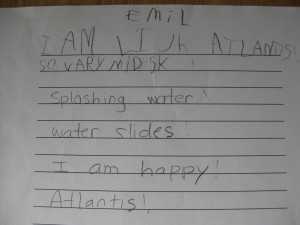 EMIL
I AM LIJK ATLANDS!
SO VARY MIDSK !
Splashing water!
water slides!
I am happy!
Atlantis!